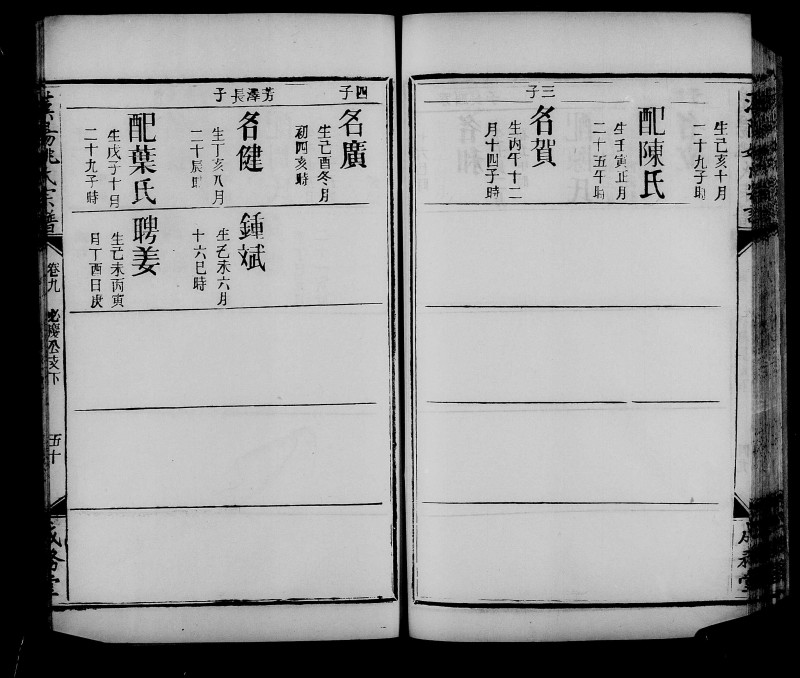 生己亥十月
二十九子時
配陳氏
生壬寅正月
二十五午時
三子
名賀
生丙午十二
月十四子時
四子
名廣
生己酉冬月
初四亥時
芳澤長子
名健
生丁亥八月
二十辰時
配葉氏
生戊子十月
二十九子時
鍾斌
生乙未六月
十六巳時
聘姜
生乙未丙寅
月丁酉日庚
卷九
下
五十